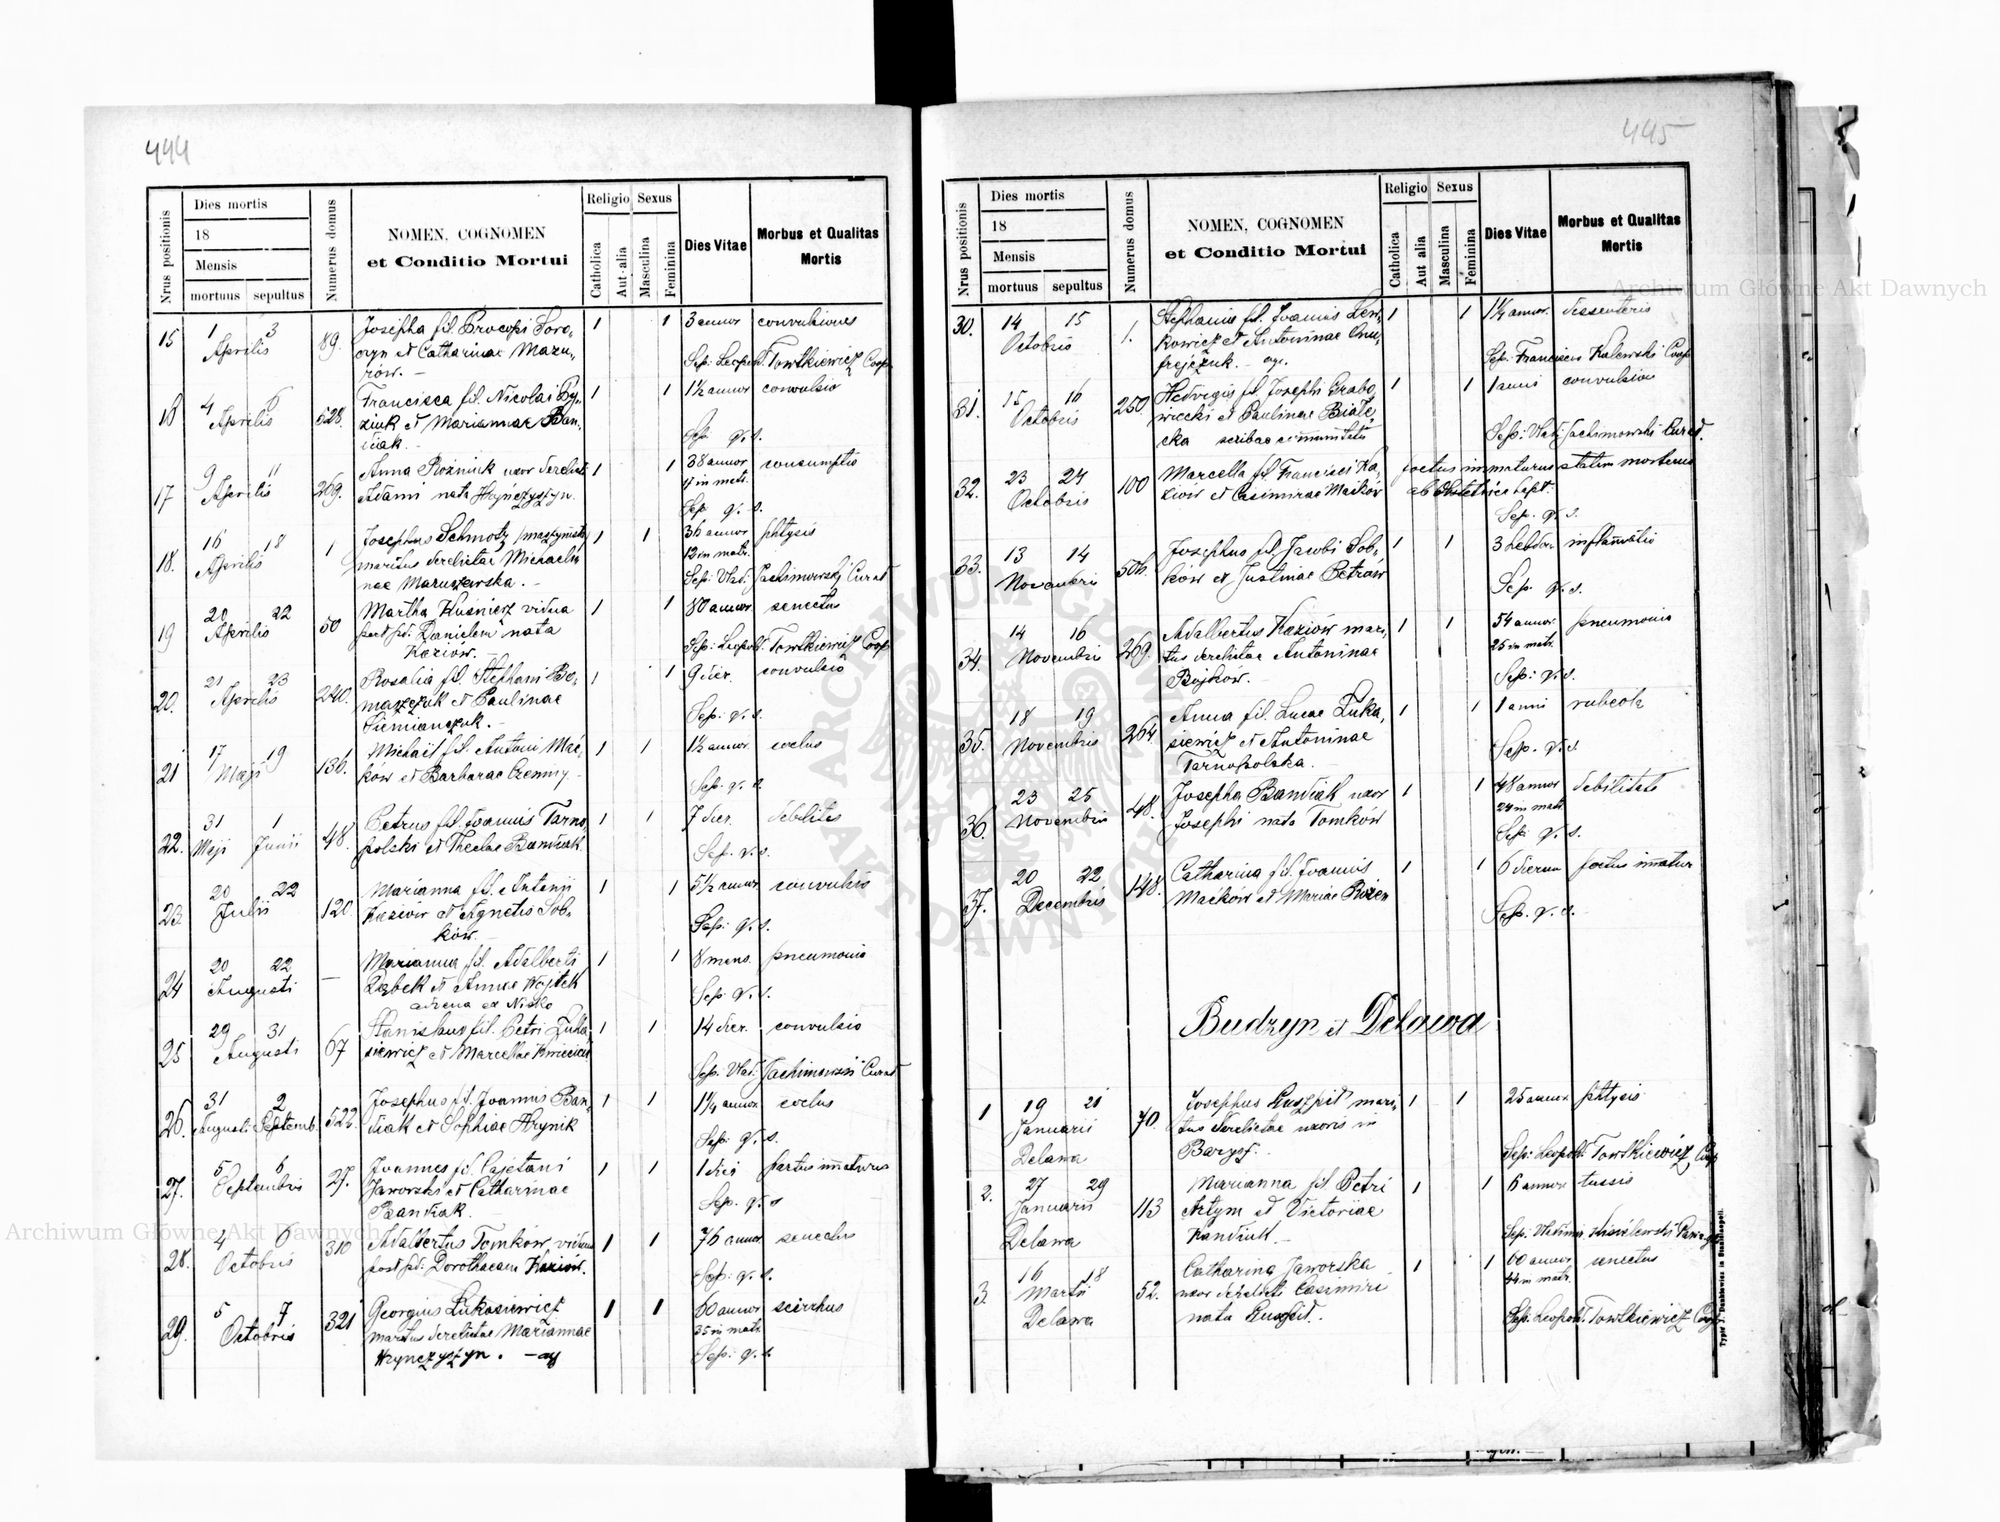 444
Nrus positionis
Dies mortis
18
Mensis
mortuus sepultus
Numerus domus
NOMEN, COGNOMEN
et Conditio Mortui
Religio
Catholica
Aut alia
Sexus
Masculina
Feminina
Dies Vitae
Morbus et Qualitas
Mortis
15 1 3 Aprilis 89. Josepha fil. Procopi Soro- 1 1 3 annor convulsiones
et Catharinae Mazu-
rów. — Sep: Leopold. Towtkiewicz Coop
16 4 6 Aprilis 528. Francisca fil. Nicolai 1 1 1½ annor convulsio
et Mariannae Ban-
diak. — Sep. q. s.
17 9 11 Aprilis 269. Anna Rożniuk uxor derelicti 1 1 38 annor consumptio
Adami nata Hryńczyszyn. 4 in matr.
Sep. q. s.
18. 16 18 Aprilis 1 Josephus Schmotz 1 1 36 annor phtysis
maritus derelictae Michaeli- 12 in matr.
nae Mazuszewska. — Sep: Vlad: Jachimowski Curat
19 20 22 Aprilis 50 Martha Kuśnierz vidua 1 1 80 annor senectus
post pd. Danielem nata
Kaziow. — Sep: Leopold. Towtkiewicz Coop
20. 21 23 Aprilis 240. Rosalia fil. Stephani Bo- 1 1 9 dier. convulsio
maszczuk et Paulinae
Siemianczuk. — Sep: q. s.
21 17 19 Maji 136. Michael fil. Antoni Mać- 1 1 1½ annor.
ków et Barbarae Czemny —
Sep. q. s.
22. 31 Maji 1 Junii 48. Petrus fil. Joannis Tarno- 1 1 7 dier. debilitas
polski et Theclae Bandiak.
Sep. q. s.
23. 20 22 Julii 120 Marianna fil. Antonii 1 1 5½ annor. convulsio
Kaziów et Agnetis Sob-
ków. — Sep: q. s.
24 20 22 Augusti — Marianna fil. Adalberti 1 1 8 mens. pneumonia
Rębek et Annae Wojtek
advena ex Nisko Sep: q. s.
25 29 31 Augusti 67 Stanislaus fil. Petri Łuka- 1 1 14 dier. convulsio
siewicz et Marcellae Kwiecien
Sep: Vlad: Jachimowski Curat
26. 31 Augusti 2 Septemb. 522. Josephus fil. Joannis Ban- 1 1 1¼ annor.
diak et Sophiae Hrynik
Sep: q. s.
27. 5 6 Septembris 27. Joannes fil. Cajetani 1 1 1 diei partus immaturus
Jaworski et Catharinae
Bandiak. Sep. q. s
28. 4 6 Octobris 310 Adalbertus Tomków, viduus 1 1 76 annor senectus
post pd. Dorotheam Kaziów.
Sep: q. s.
29. 5 7 Octobris 321 Georgius Łukasiewicz 1 1 60 annor scirrhus
maritus derelictae Mariannae 35 in matr.
Hrynczyszyn. — Sep: q. s.
445
Nrus positionis
Dies mortis
18
Mensis
mortuus sepultus
Numerus domus
NOMEN, COGNOMEN
et Conditio Mortui
Religio
Catholica
Aut alia
Sexus
Masculina
Feminina
Dies Vitae
Morbus et Qualitas
Mortis
30. 14 15 Octobris 1. Stephania fil. Joannis Lew- 1 1 1¼ annor. dissenteria
kowicz et Antoninae Onu-
frejczuk. — Sep: Franciscus Kalewski Coop
31. 15 16 Octobris 250. Hedvigis fil. Josephi Grabo- 1 1 1 anni convulsion
wiecki et Paulinae Białe-
cka scribae communitatis Sep: Vlad: Jachimowski Curat.
32. 23 24 Octobris 100 Marcella fil. Francisci Ka- foetus immaturus statim mortuus
ziów et Casimirae Maćków ab Obstetrice bapt:
Sep. q. s.
33. 13 14 Novembris 506. Josephus fil. Jacobi Sob- 1 1 3 hebdom inflammatio
ków et Justinae Petrów
Sep. q. s.
34. 14 16 Novembris 269. Adalbertus Kaziów mari- 1 1 54 annor. pneumonia
tus derelictae Antoninae 25 in matr.
Bojków. Sep: q. s.
35. 18 19 Novembris 264. Anna fil. Lucae Łuka- 1 1 1 anni rubeola
siewicz et Antoninae
Tarnopolska. — Sep. q. s
36. 23 25 Novembris 48. Josepha Bandiak uxor 1 1 48 annor debilitate
Josephi nata Tomków 24 in matr
Sep: q. s.
37. 20 22 Decembris 148. Catharina fil. Joannis 1 1 6 dierum foetus immatur
Maćków et Mariae Rożen
Sep. q. s.
Budzyn et Delawa
1 19 21 Januarii Delawa 70. Josephus Puszpit mari- 1 1 25 annor. phtysis
tus derelictae uxoris in
Barysz. Sep: Leopold: Towtkiewicz, Coop
2. 27 29 Januarii Delawa 113 Marianna fil Petri 1 1 6 annor tussis
Artym et Victoriae
Kandiuk. —
3. 16 18 Martii Delawa 52. Catharina Jaworska 1 1 60 annor. senectus
uxor derelicti Casimiri 44 in matr.
nata Puszpit. Sep: Leopold. Towtkiewicz Coop
Archiwum Główne Akt Dawnych
Archiwum Główne Akt Dawnych
ARCHIWUM GŁÓWNE AKT DAWNYCH